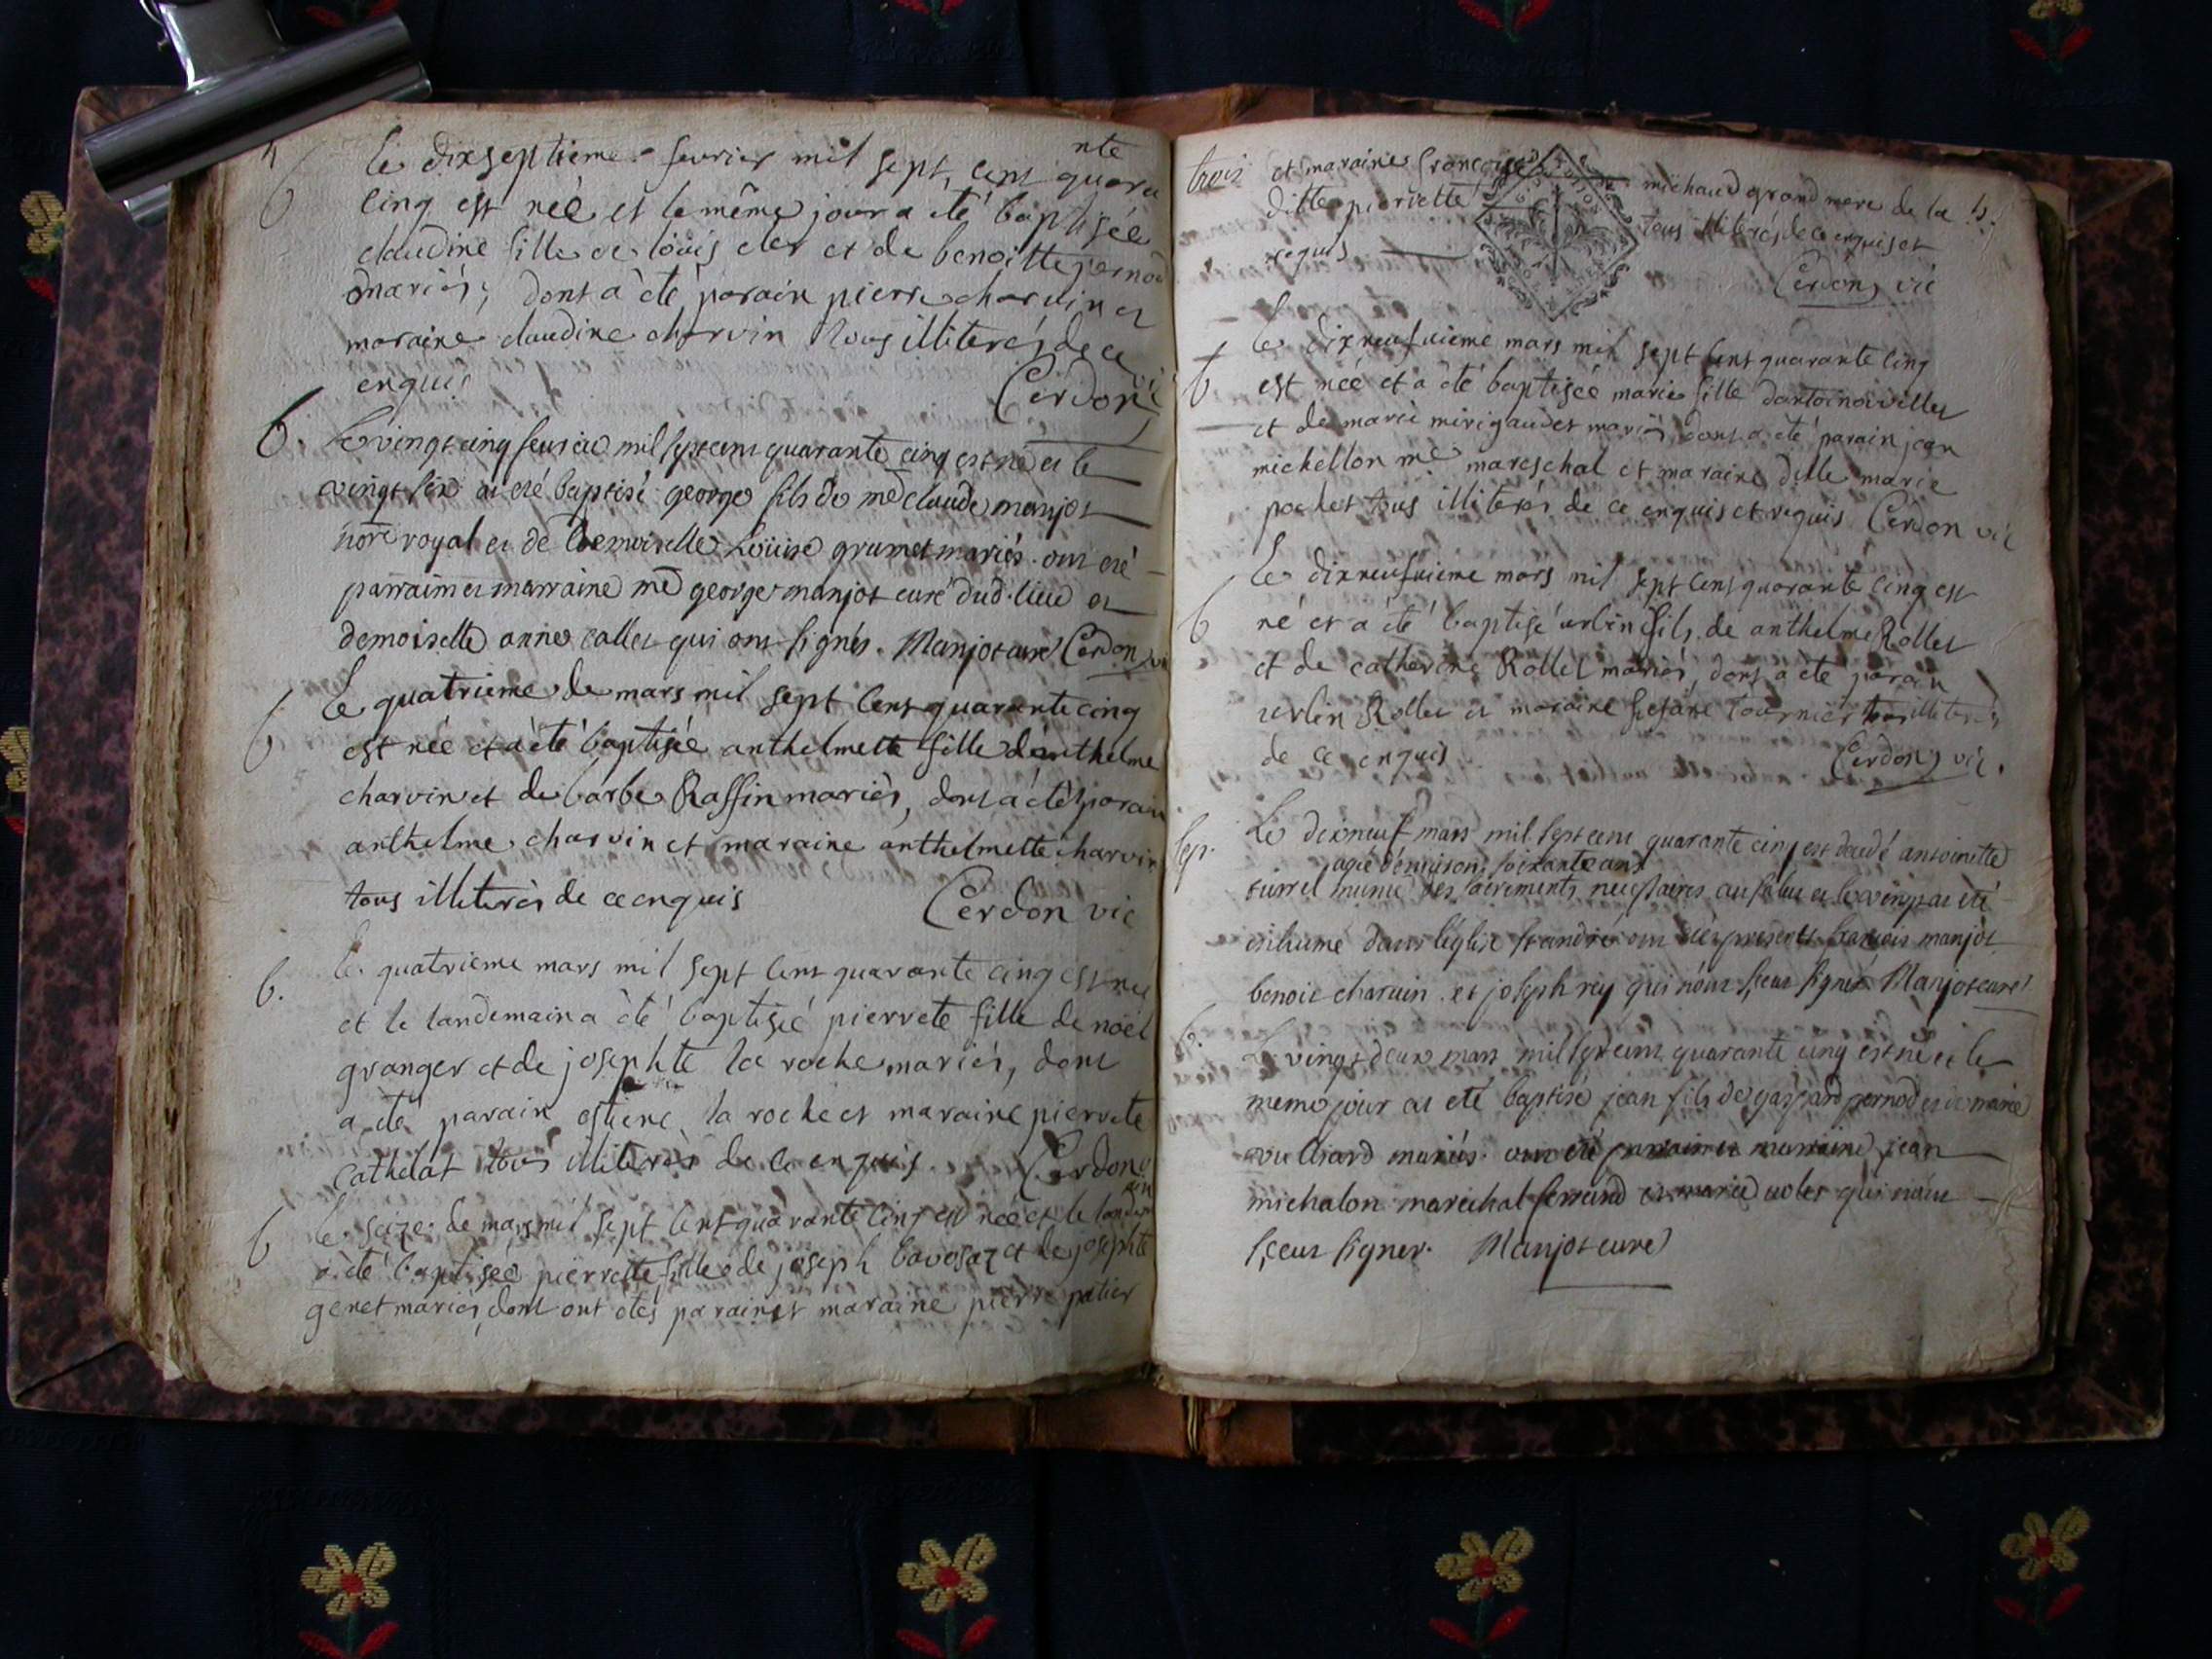 le dixseptieme fevrier mil sept cent quara nte
cinq est neé et le même jour a eté baptisée
claudine fille de loüis cler et de benoitte pernod
mariés, dont a èté parain pierre charvin et
maraine claudine charvin tous illiterés de ce
enquis Cerdon vi
b. Le vingt cinq feurier mil sept cent quarante cinq est né et le
vingt six a eté baptisé george fils de me claude manjot
nore royal et de demoiselle Loüise grumet mariés. ont eté
parrain et marraine me george manjot curé dud. lieu et
demoiselle anne callet qui ont signés. Manjot curé Cerdon vi
b Le quatrieme de mars mil sept cent quarante cinq
est née et a èté baptisée anthelmette fille danthelme
charvin et de barbe Raffin mariés, dont a èté parain
anthelme charvin et maraine anthelmette charvin
tous illiterés de ce enquis Cerdon vic
b. le quatrieme mars mil sept cent quarante cinq est née
et le landemain a èté baptisée pierrete fille de noël
granger et de josephte la roche mariés, dont
a èté parain estiene la roche et maraine pierrete
cathelat tous illiterés de ce enquis. Cerdon
b le seize de mars mil sept cent quarante cinq est neé et le landemain
a èté baptiseé pierrette fille de joseph bavosaz et de josephte
genet mariés, dont ont étés parain et maraine pierre patier
trois et maraine francoise michaud grand mere de la b.
ditte pierrette tous illiterés de ce enquis et
requis Cerdon, vic
b le dixneufuieme mars mil sept cent quarante cinq
est neé et a èté baptisée marie fille dantoine villet
et de marie mirigaudet mariés, dont a èté parain jean
michellon me mareschal et maraine dlle marie
pochet tous illiterés de ce enquis et requis Cerdon vic
b le dixneufuieme mars mil sept cent quarante cinq est
né et a èté baptisé urbin fils de anthelme Rollet
et de catherine Rollet mariés, dont a èté parain
urbin Rollet et maraine susane tournier tous illiterés
de ce enquis Cerdon, vic.
sep. Le dixneuf mars mil sept cent quarante cinq est decedé antoinette
ageé denviron soixante ans
munie des sacrements necessaires au salut et le vingt a eté
inhumé dans léglise st andré ont étés presents francois manjot
benoit charuin et joseph rey qui nônt sceu signer Manjot curé
b. Le vingt deux mars mil sept cent quarante cinq est né et le
meme jour a eté baptisé jean fils de gaspard pernod et de marie
vulliard mariés. ont eté parrain et marraine jean
michalon marechal ferrand et marie uolet qui nônt
sceut signer. Manjot curé